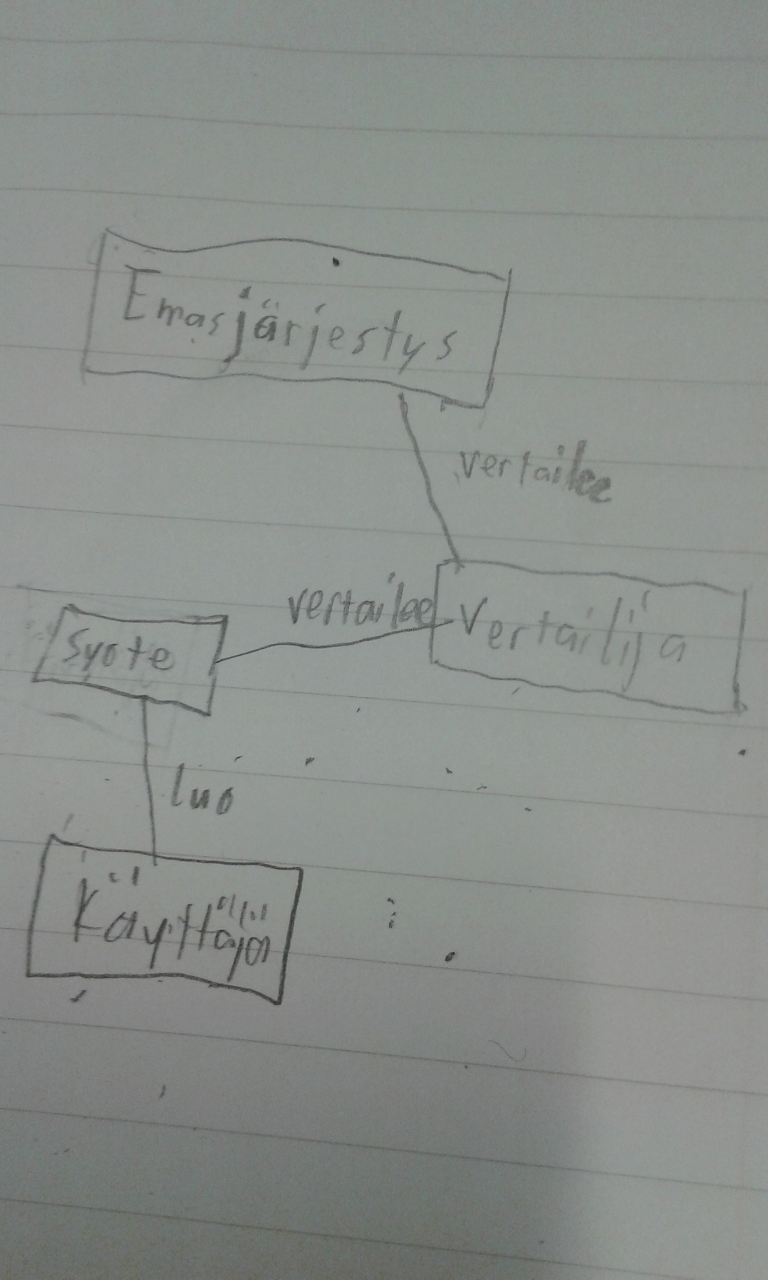 Emasjärjestys
vertailee
vertailee
Vertailija
Syote
luo
Käyttäjä